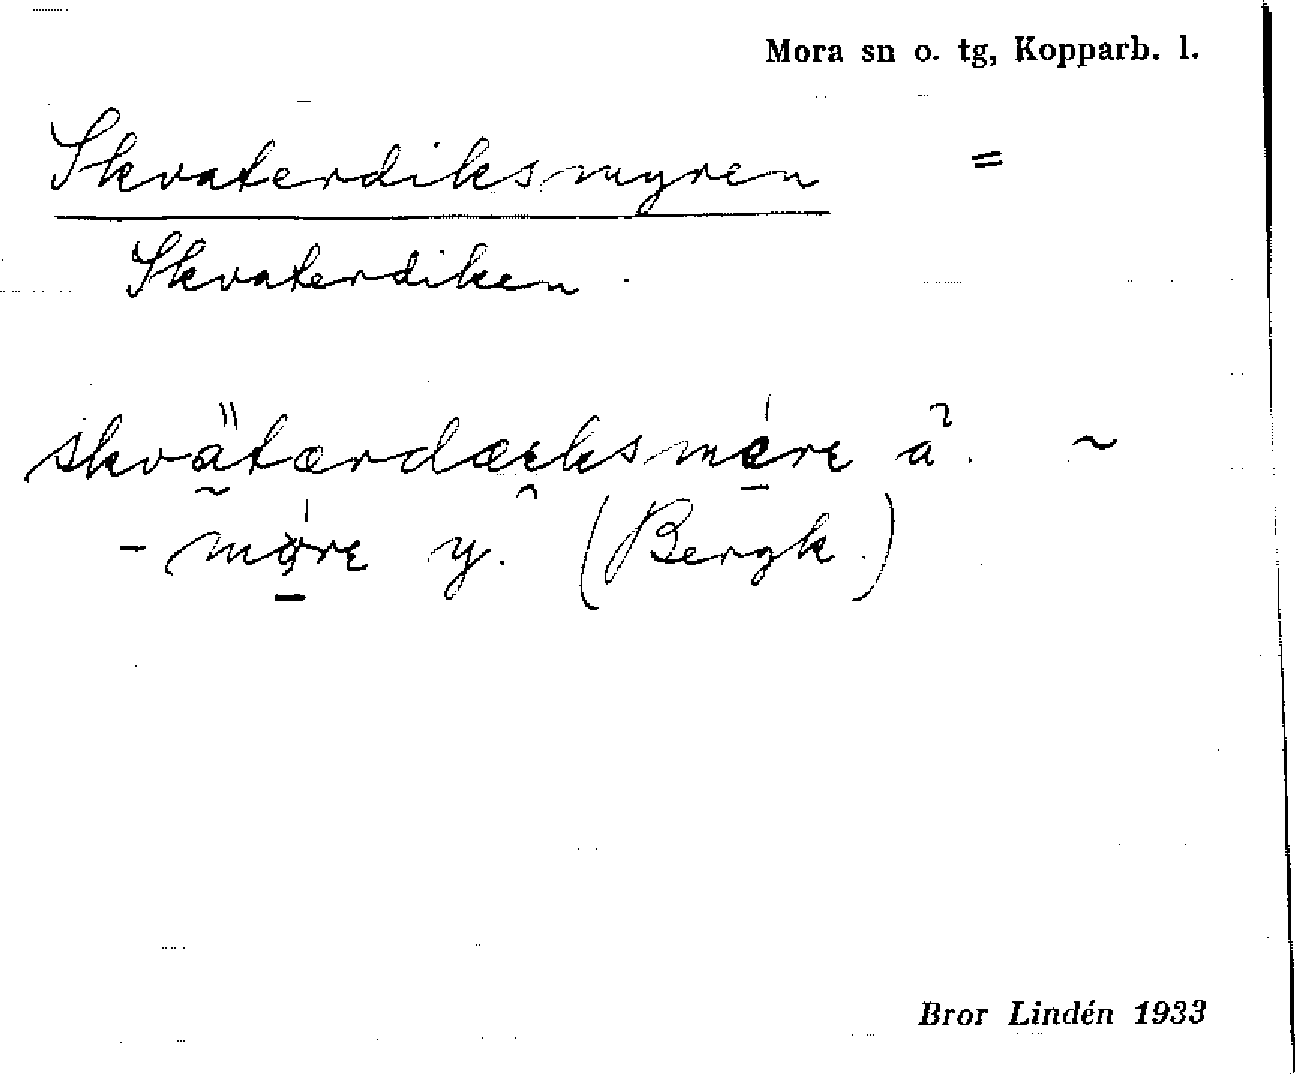 Mora sn o. tg, Kopparb. l.
Skvaterdiksmyren =
Skvaterdiken.
skvätærdæɛksmére å. ~
- möre y. (Bergk.)
Bror Lindén 1933